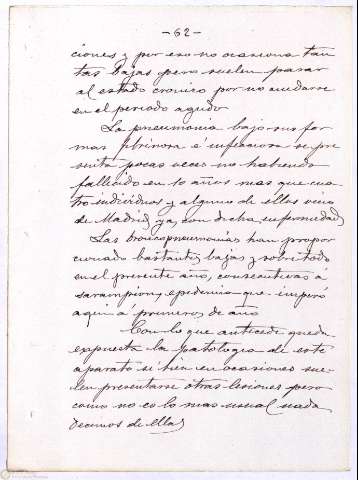 -62-
ciones y por eso no ocasiona tan
tas bajas pero suelen pasar
al estado crónico por no cuidarse
en el periodo agudo
La pneumonia bajo sus for
mas fibrinosa é infecciosa se pre
senta pocas veces no habiendo
fallecido en 10 años mas que cua
tro individuos y alguno de ellos vino
de Madrid ya, con dicha enfermedad
Las broncopneumonias han propor
cionado bastantes bajas y sobre todo
en el presente año, consecutivas á
sarampion, epidemia que imperó
aqui á primeros de año
Con lo que antecede queda
expuesta la patologia de este
aparato si bien en ocasiones sue
len presentarse otras lesiones pero
como no es lo mas usual nada
decimos de ellas